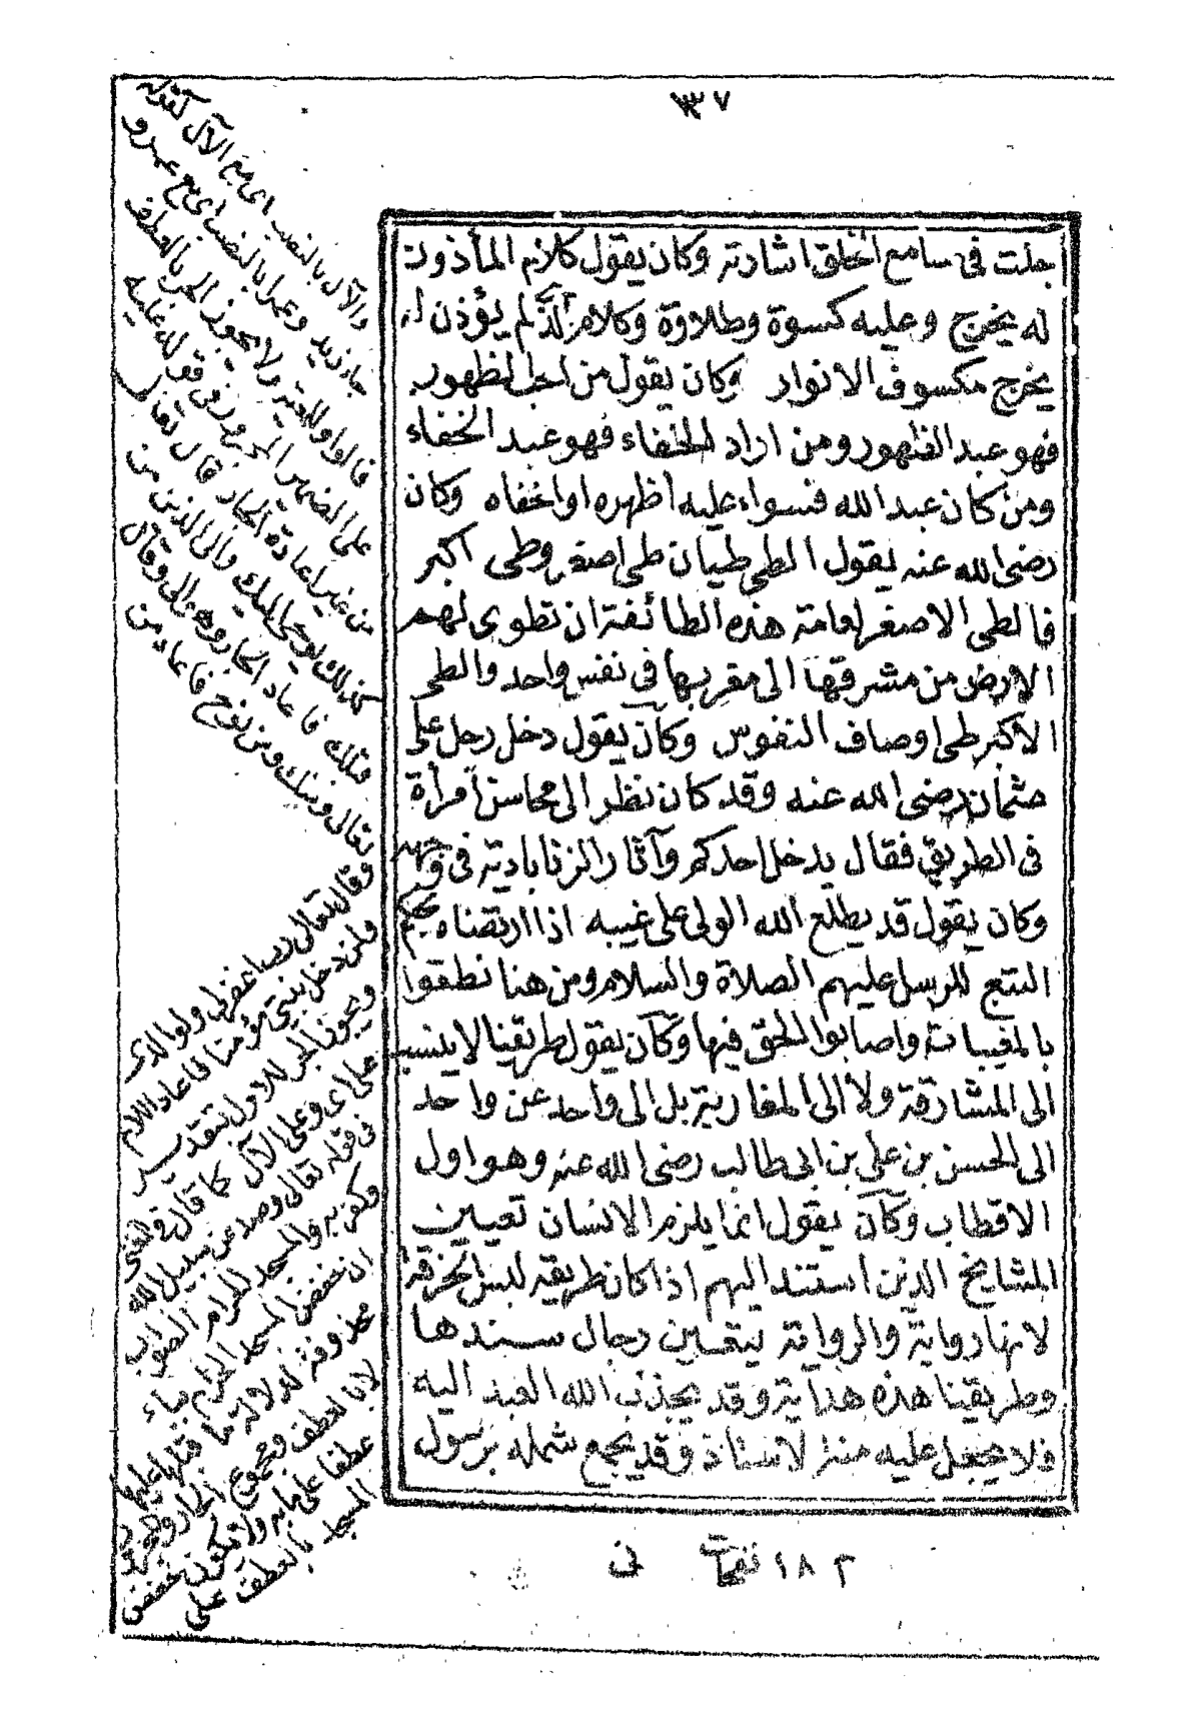 ١٣٧
جلت في مسامع الخلق اشارته وكان يقول كلام المأذون
له يخرج وعليه كسوة وطلاوة وكلام الذي لم يؤذن له
يخرج مكسوف الانوار وكان يقول من احب الظهور
فهو عبد الظهور ومن اراد الخفاء فهو عبد الخفاء
ومن كان عبد الله فسواء عليه أظهره او اخفاه وكان
رضى الله عنه يقول الطى طيان طى اصغر وطى اكبر
فالطى الاصغر لعامة هذه الطائفة ان تطوى لهم
الارض من مشرقها الى مغربها في نفس واحد والطى
الاكبر طى اوصاف النفوس وكان يقول دخل رجل على
عثمان رضى الله عنه وقد كان نظر الى محاسن امرأة
في الطريق فقال يدخل احدكم وآثار الزنا بادية في وجهه
وكان يقول قد يطلع الله الولى على غيبه اذا ارتضاه بحكم
التبع للرسل عليهم الصلاة والسلام ومن هنا نطقوا
بالمغيبات واصابوا الحق فيها وكان يقول طريقنا لا ينسب
الى المشارقة ولا الى المغاربة بل الى واحد عن واحد
الى الحسن بن على بن ابى طالب رضى الله عنه وهو اول
الاقطاب وكان يقول انما يلزم الانسان تعيين
المشايخ الذين استند اليهم اذا كان طريقه لبس الخرقة
لانها رواية والرواية يتعين رجال سندها
وطريقنا هذه هداية وقد يجذب الله العبد اليه
فلا يجعل عليه منة لاستاذ وقد يجمع شمله برسول
١٨٢ نفحات فى
والآل بالنصب اى مع الآل كقوله
جاء زيد وعمرا بالنصب اى مع عمرو
قالوا وللمعية ولا يجوز الجر بالعطف
على الضمير المجرور في قوله عليه
من غير اعادة الجار قال تعالى
كذلك يوحى اليك والى الذين من
قبلك فاعاد الجار وهو الى وقال
تعالى ومنك ومن نوح فاعاد من
وقال تعالى رب اغفر لى ولوالدى
ولمن دخل بيتى مؤمنا فاعاد اللام
ويجوز الجر للاول بتقدير
على اى وعلى الآل كما قال في المغنى
في قوله تعالى وصد عن سبيل الله
وكفر به والمسجد الحرام الصواب
ان خفض المسجد الحرام بباء
محذوفة لدلالة ما قبلها عليها
لا بالعطف ومجموع الجار والمجرور
عطفا على به ولا يكون خفض
المسجد بالعطف على